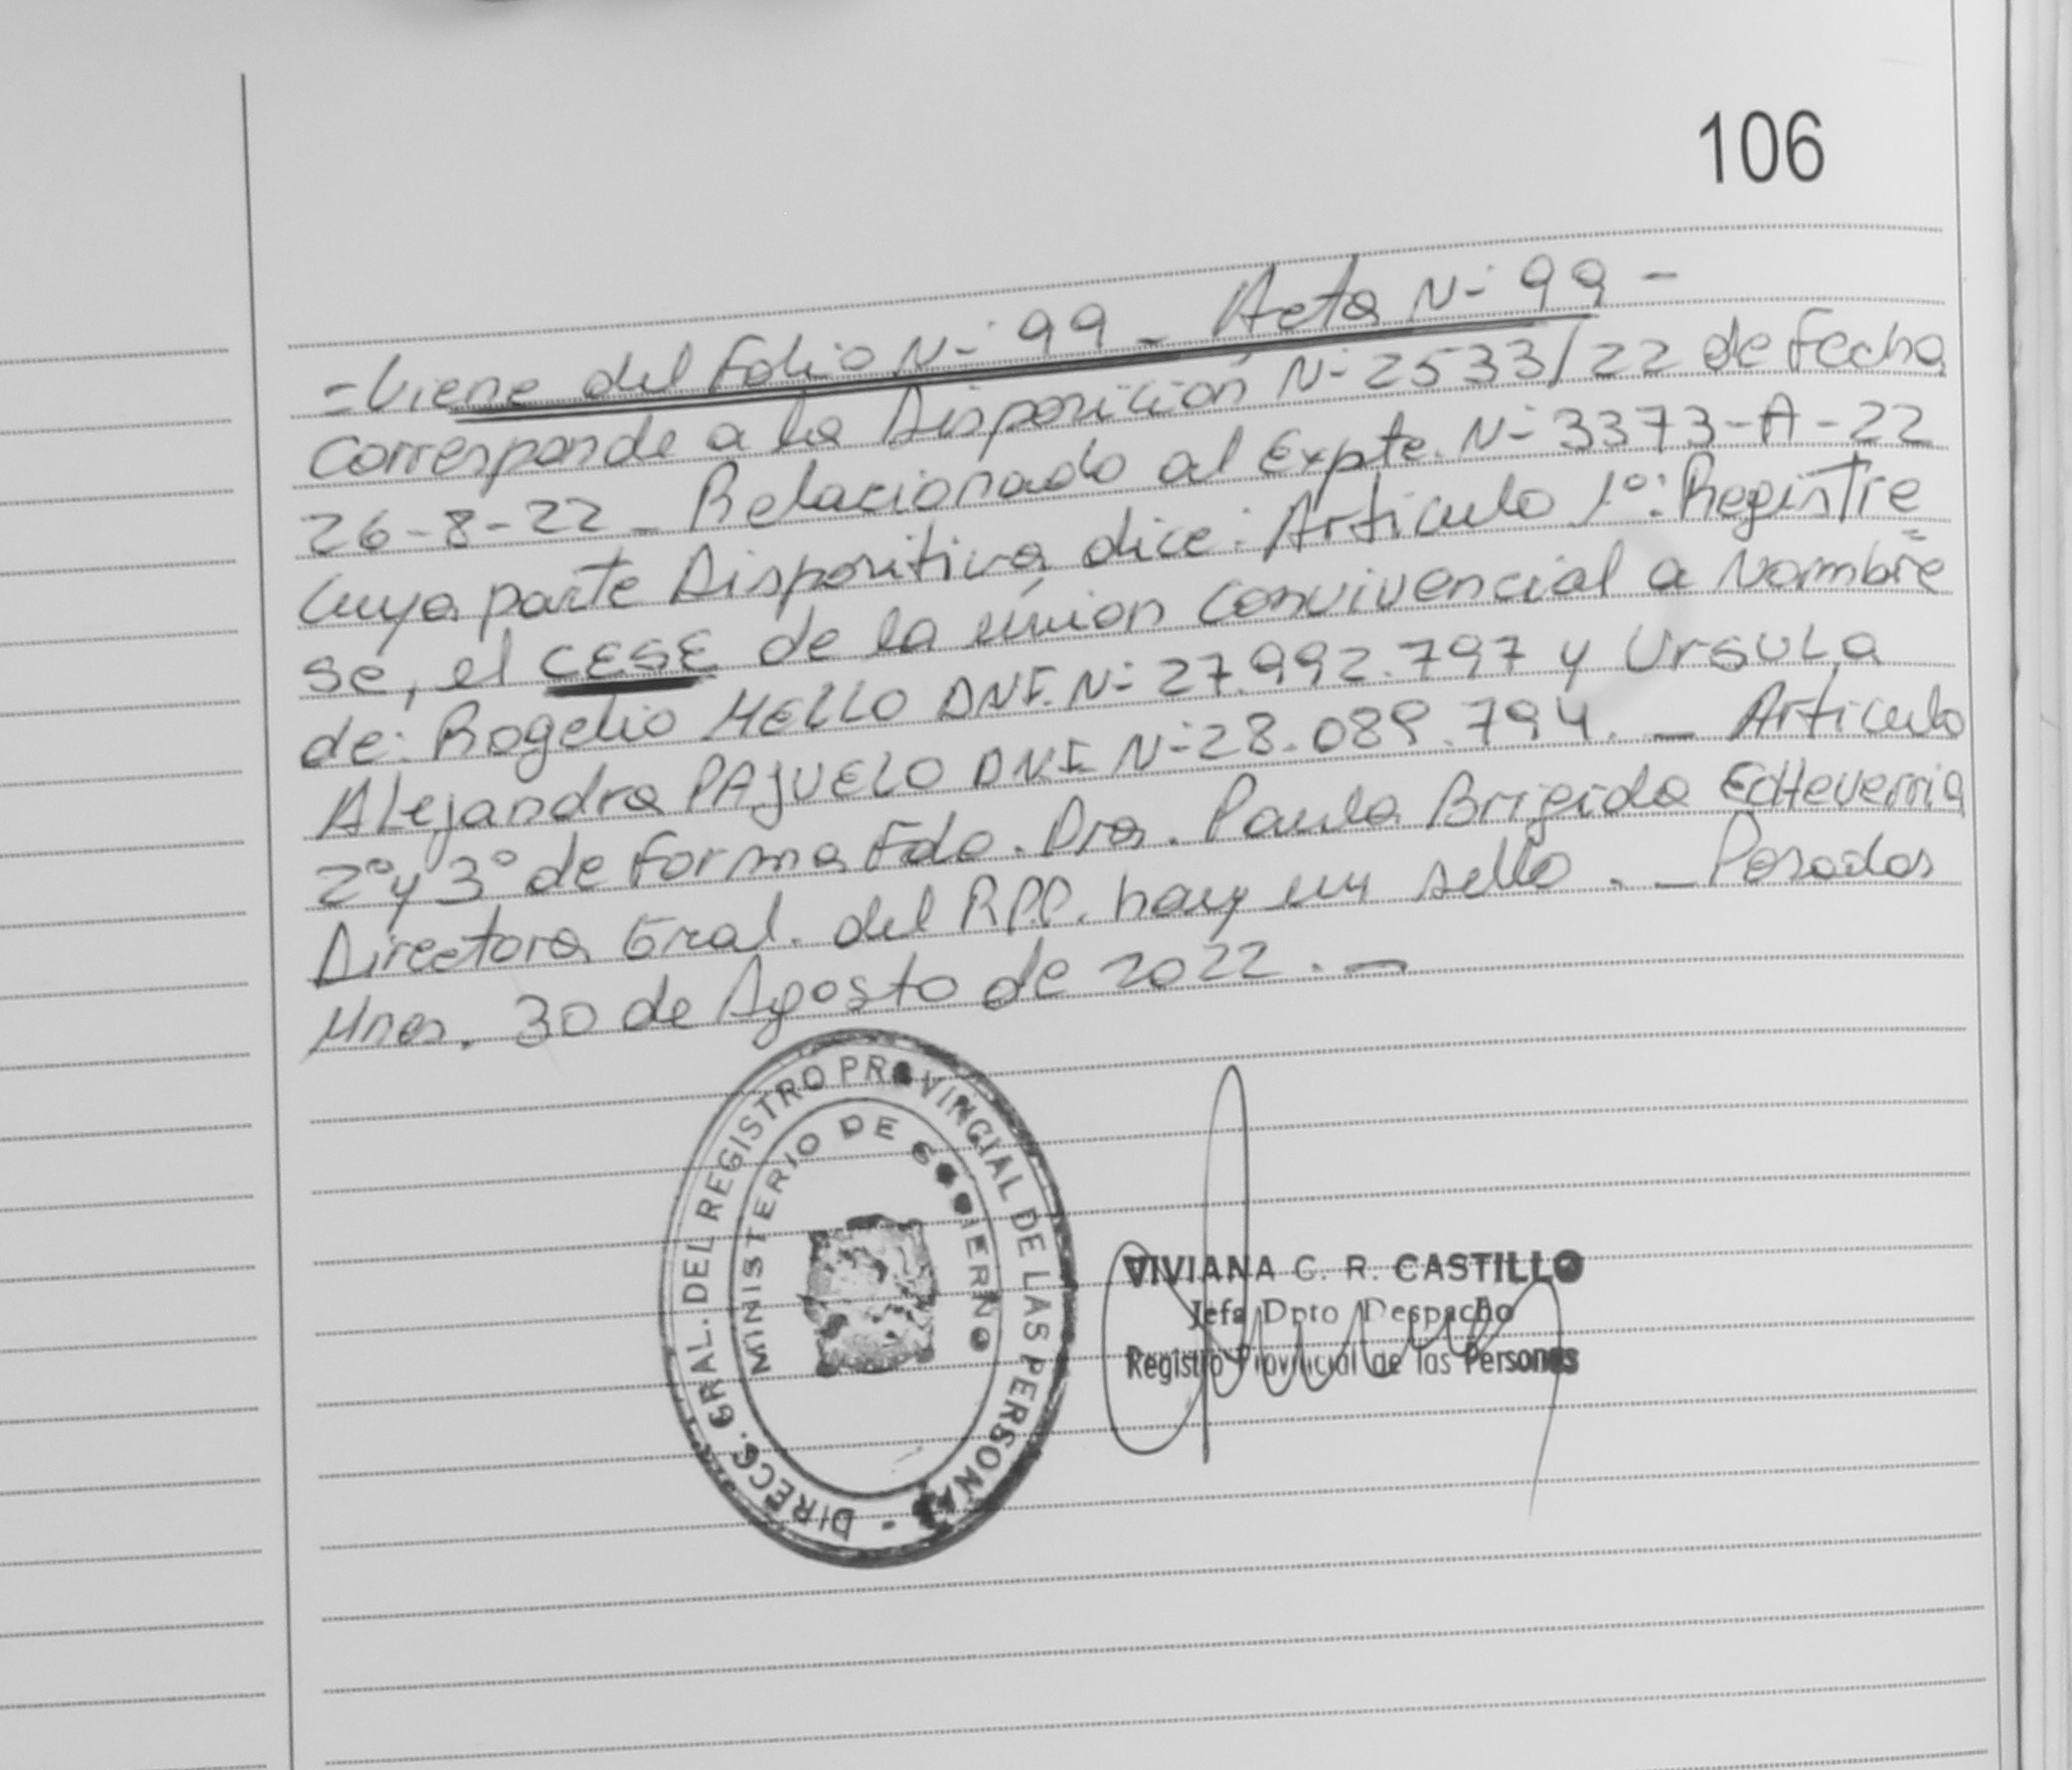 106
=Viene del Folio N- 99 - Acta N- 99 -
Corresponde a la Disposición N- 2533/22 de fecha
26-8-22 _ Relacionado al Expte. N- 3373-A-22
Cuya parte Dispositiva dice: Articulo 1º: Registre=
se, el CESE de la unión convivencial a Nombre
de: Rogelio MELLO DNI. N- 27.992.797 y Ursula
Alejandra PAJUELO DNI N- 28.089.794. _ Articulo
2º y 3º de forma Fdo. Dra. Paula Brigida Echeverria
Directora Gral. del RPP. hay un sello. _ Posadas
Mnes. 30 de Agosto de 2022. -
DIRECC. GRAL. DEL REGISTRO PROVINCIAL DE LAS PERSONAS -
MINISTERIO DE GOBIERNO
VIVIANA C. R. CASTILLO
Jefa Dpto Despacho
Registro Provincial de las Personas